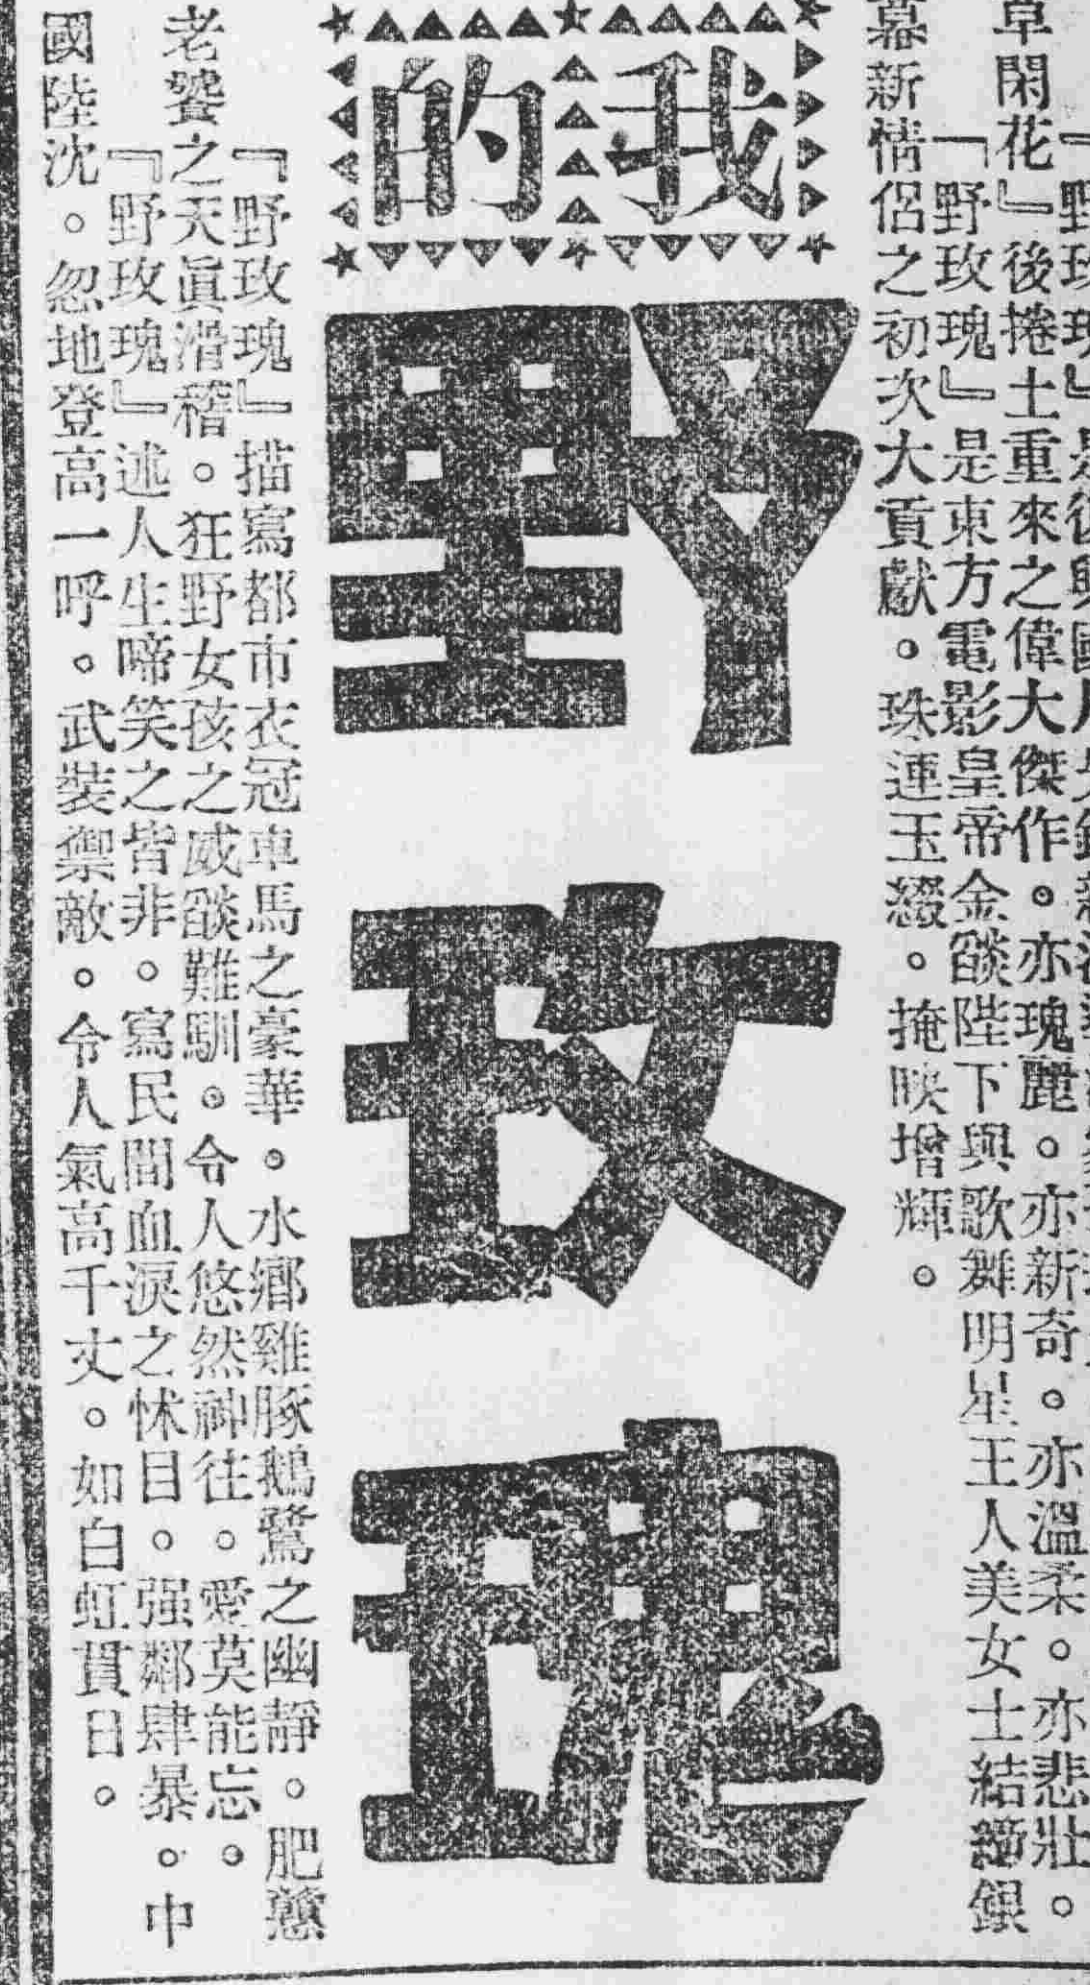 『野玫瑰』是
草閑花』後捲土重來之偉大傑作。亦瑰麗。亦新奇。亦溫柔。亦悲壯。
『野玫瑰』是東方電影皇帝金燄陛下與歌舞明星王人美女士結締銀
幕新情侶之初次大貢獻。珠連玉綴。掩映增輝。
我的
野玫瑰
『野玫瑰』描寫都市衣冠車馬之豪華。水鄉雞豚鵝鷺之幽靜。肥戇
老饕之天眞滑稽。狂野女孩之威燄難馴。令人悠然神往。愛莫能忘。
『野玫瑰』述人生啼笑之皆非。寫民間血淚之怵目。强鄰肆暴。中
國陸沈。忽地登高一呼。武裝禦敵。令人氣高千丈。如白虹貫日。